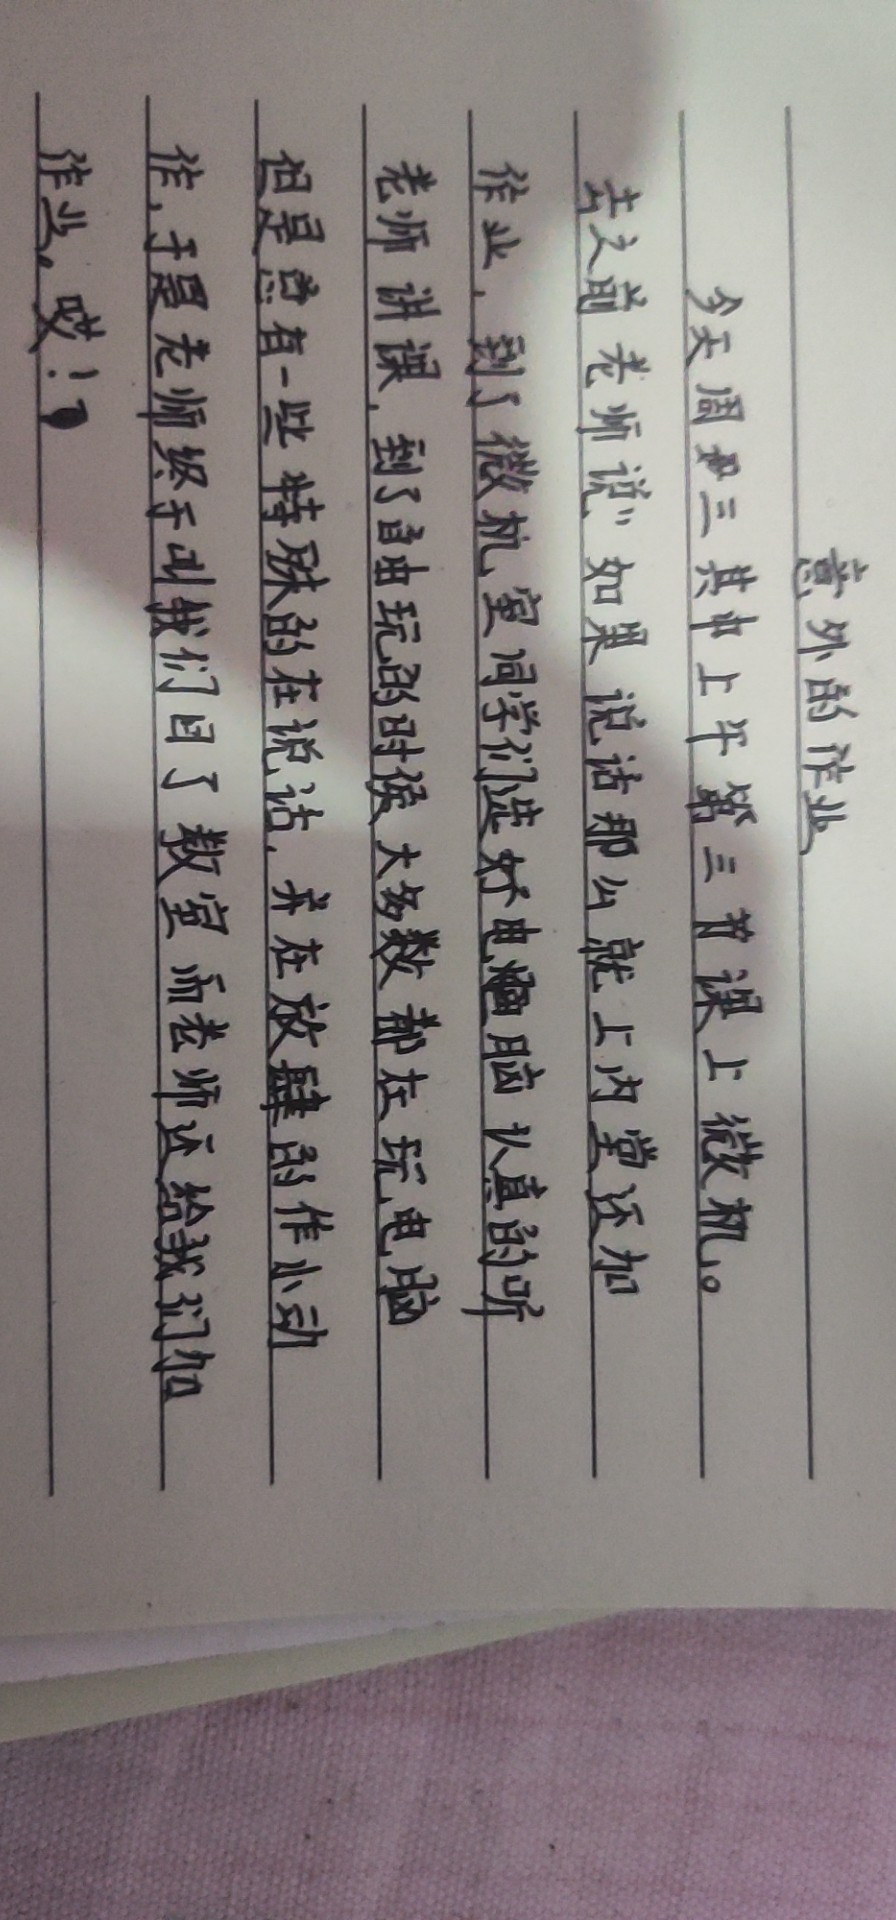 意外的作业
今天周三其中上午第三节课上微机。
去之前老师说"如果说话那么就上内堂还加
作业，到了微机室同学们选好电脑认真的听
老师讲课，到了自由玩的时候大多数都在玩电脑
但是总有一些特殊的在说话，并在放肆的作小动
作，于是老师终于叫我们回了教室而老师还给我们加
作业。哎！